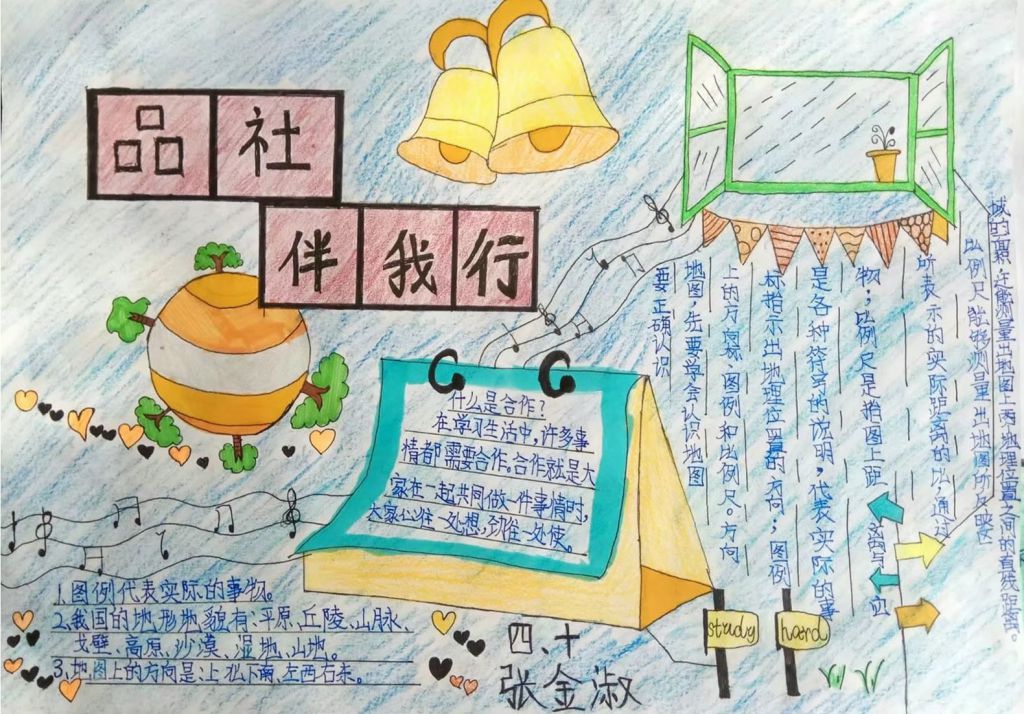 品社
伴我行
什么是合作?
在学习生活中,许多事
情都需要合作。合作就是大
家在一起共同做一件事情时,
大家心往一处想,劲往一处使。
要正确认识
地图,先要学会认识地图
上的方向、图例和比例尺。方向
标指示出地理位置的方向;图例
是各种符号的说明,代表实际的事
物;比例尺是指图上距
所表示的实际距离的比;通过
比例尺能够测量出地图所反映
域的面积,还能测量出地图上两地理位置之间的直线距离。
1.图例代表实际的事物。
2.我国的地形地貌有:平原、丘陵、山脉、
戈壁、高原、沙漠、湿地、山地。
3.地图上的方向是:上北下南、左西右东。
study hard
四、十
张金淑